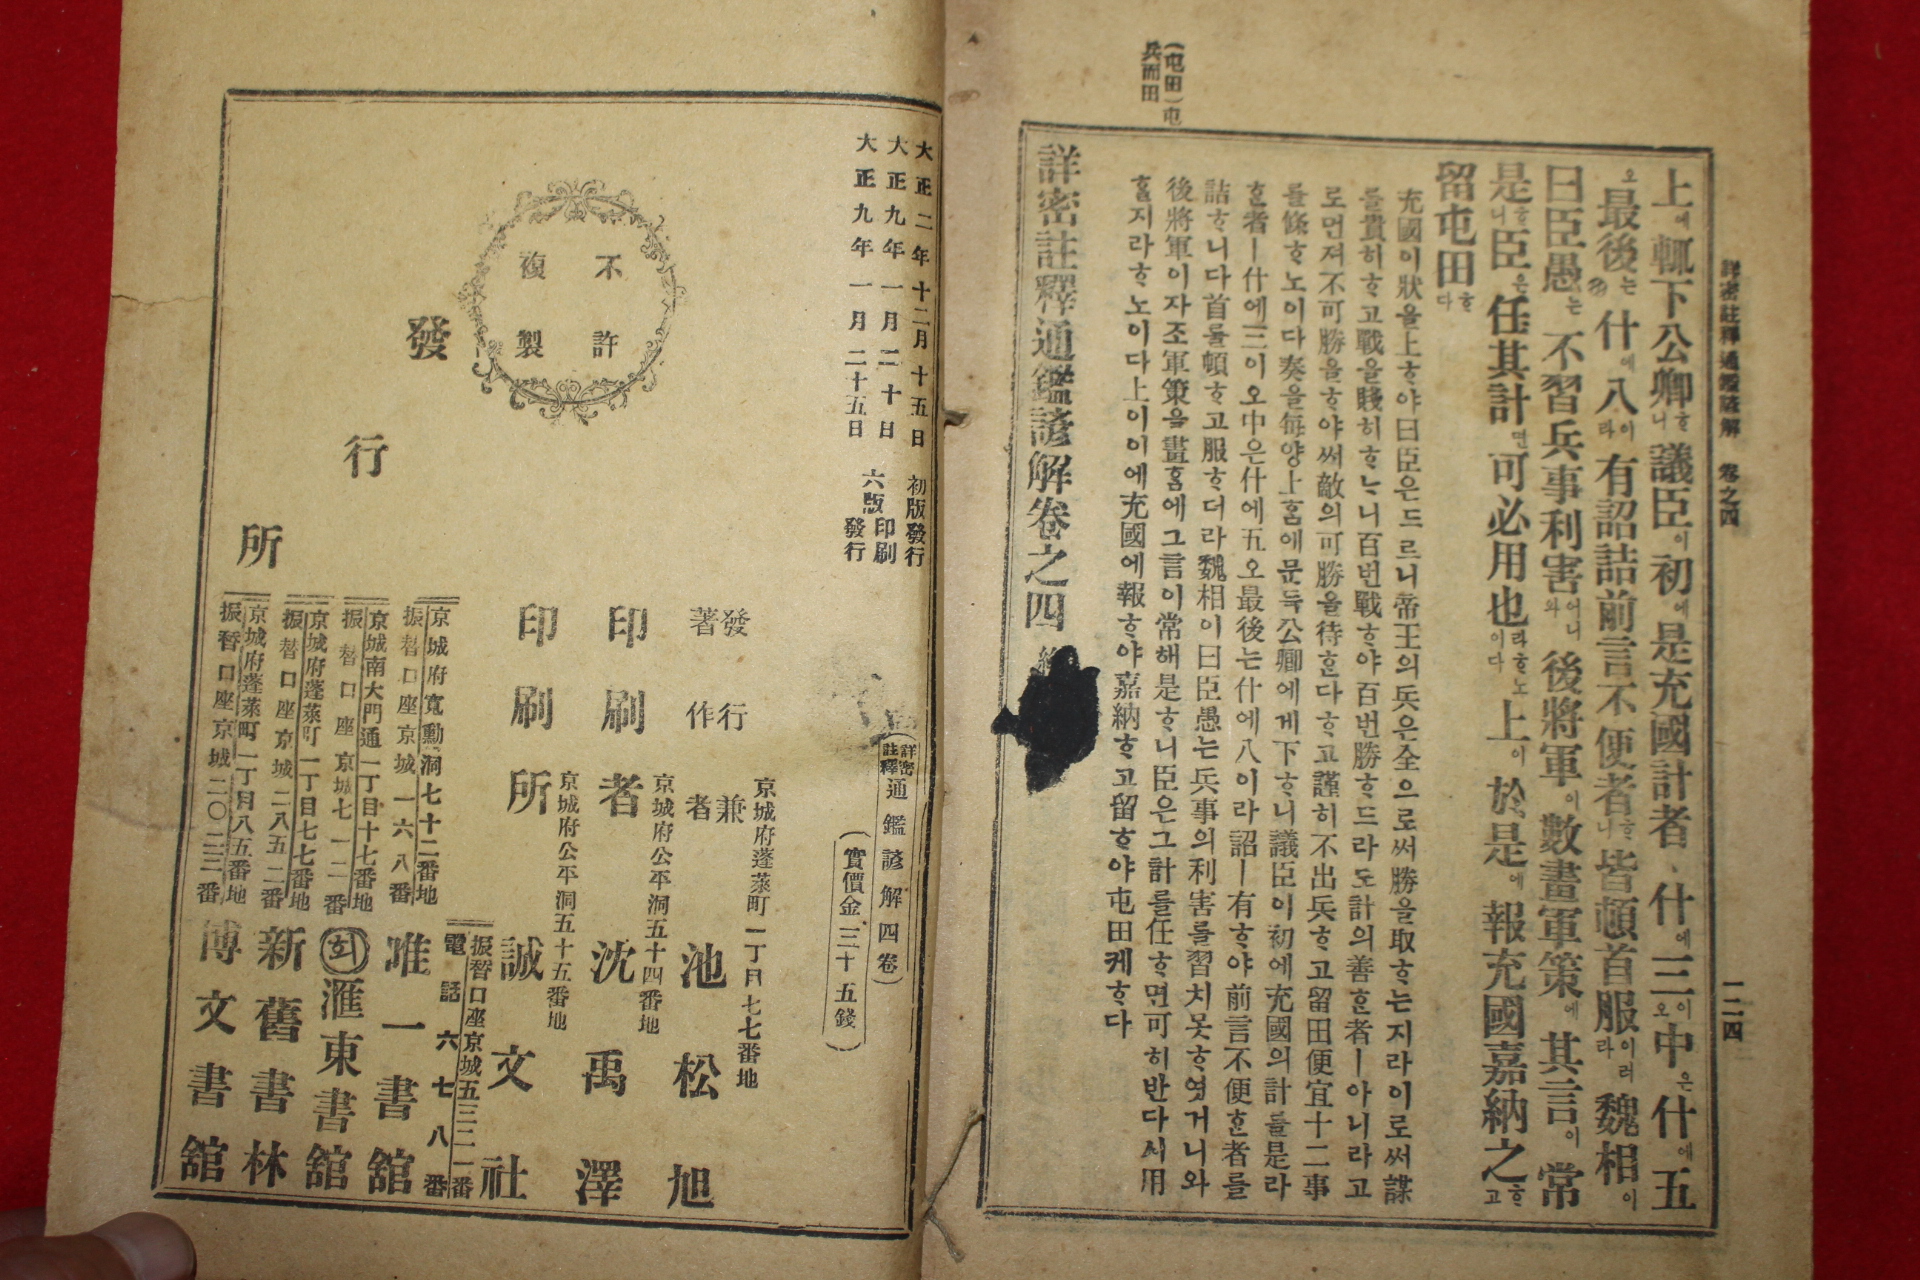 詳密註釋通鑑諺解 卷之四
一二四
(屯田)屯
兵而田
上에輒下公卿ᄒᆞ니議臣이初에是充國計者、什에三이오中은什에五
오最後는什에八이라有詔詰前言不便者ᄒᆞ니皆頓首服이러라魏相이
曰臣愚는不習兵事利害어니와後將軍이數畫軍策에其言이常
是ᄒᆞ니臣은任其計면可必用也라ᄒᆞ노이다上이於是에報充國嘉納之ᄒᆞ고
留屯田ᄒᆞ다
充國이狀을上ᄒᆞ야曰臣은드르니帝王의兵은全으로써勝을取ᄒᆞ는지라이로써謀
를貴히ᄒᆞ고戰을賤히ᄒᆞᄂᆞ니百번戰ᄒᆞ야百번勝ᄒᆞ드라도計의善ᄒᆞᆫ者ㅣ아니라고
로먼져不可勝을ᄒᆞ야써敵의可勝을待ᄒᆞᆫ다ᄒᆞ고謹히不出兵ᄒᆞ고留田便宜十二事
를條ᄒᆞ노이다奏을每양上ᄒᆞᆷ에문득公卿에게下ᄒᆞ니議臣이初에充國의計를是라
ᄒᆞᆫ者ㅣ什에三이오中은什에五오最後는什에八이라詔ㅣ有ᄒᆞ야前言不便ᄒᆞᆫ者를
詰ᄒᆞ니다首를頓ᄒᆞ고服ᄒᆞ더라魏相이曰臣愚는兵事의利害를習치못ᄒᆞ엿거니와
後將軍이자조軍策을畫ᄒᆞᆷ에그言이常해是ᄒᆞ니臣은그計를任ᄒᆞ면可히반다시用
ᄒᆞᆯ지라ᄒᆞ노이다上이이에充國에報ᄒᆞ야嘉納ᄒᆞ고留ᄒᆞ야屯田케ᄒᆞ다
詳密註釋通鑑諺解卷之四
大正二年十二月十五日 初版發行
大正九年一月二十日 六版印刷
大正九年一月二十五日 發行
詳密註釋 通鑑諺解四卷
(實價金三十五錢)
不許
複製
京城府蓬萊町一丁目七七番地
發行兼
著作者 池松旭
京城府公平洞五十四番地
印刷者 沈禹澤
京城府公平洞五十五番地
印刷所 誠文社
發行所
振替口座京城五三二一番
電話六七八番
京城府寬勳洞七十二番地
振替口座京城一六八番
唯一書館
京城南大門通一丁目十七番地
振替口座京城七一二番
회 滙東書館
京城府蓬萊町一丁目七七番地
振替口座京城二八五二番
新舊書林
京城府蓬萊町一丁目八五番地
振替口座京城二〇二三番
博文書館